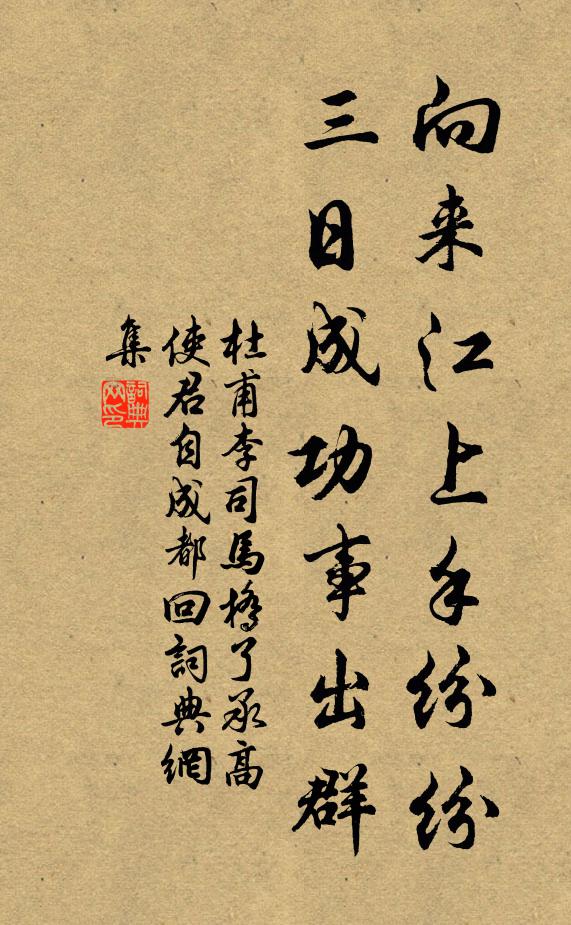 向来江上手纷纷
三日成功事出群
杜甫李司馬橋了承高
使君自成都回詞典網
集
詞典
网印